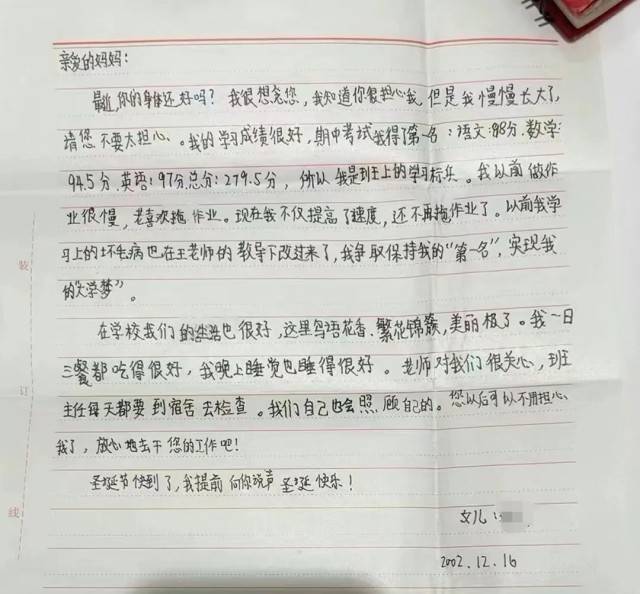 亲爱的妈妈：
最近，你的身体还好吗？我很想念您，我知道你很担心我，但是我慢慢长大了，
请您不要太担心。我的学习成绩很好，期中考试我得了第一名：语文：88分.数学：
94.5分.英语：97分.总分：279.5分，所以我是班上的学习标兵。我以前做作
业很慢，老喜欢拖作业。现在我不仅提高了速度，还不再拖作业了。以前我学
习上的坏毛病也在王老师的教导下改过来了，我争取保持我的“第一名”，实现我
的“大学梦”。
在学校我们的生活也很好，这里鸟语花香.繁花锦簇，美丽极了。我一日
三餐都吃得很好，我晚上睡觉也睡得很好。老师对我们很关心，班
主任每天都要到宿舍去检查。我们自己也会照顾自己的。您以后可以不用担心
我了，放心地去干您的工作吧！
圣诞节快到了，我提前向你说声圣诞快乐！
女儿：
2002.12.16
装
订
线